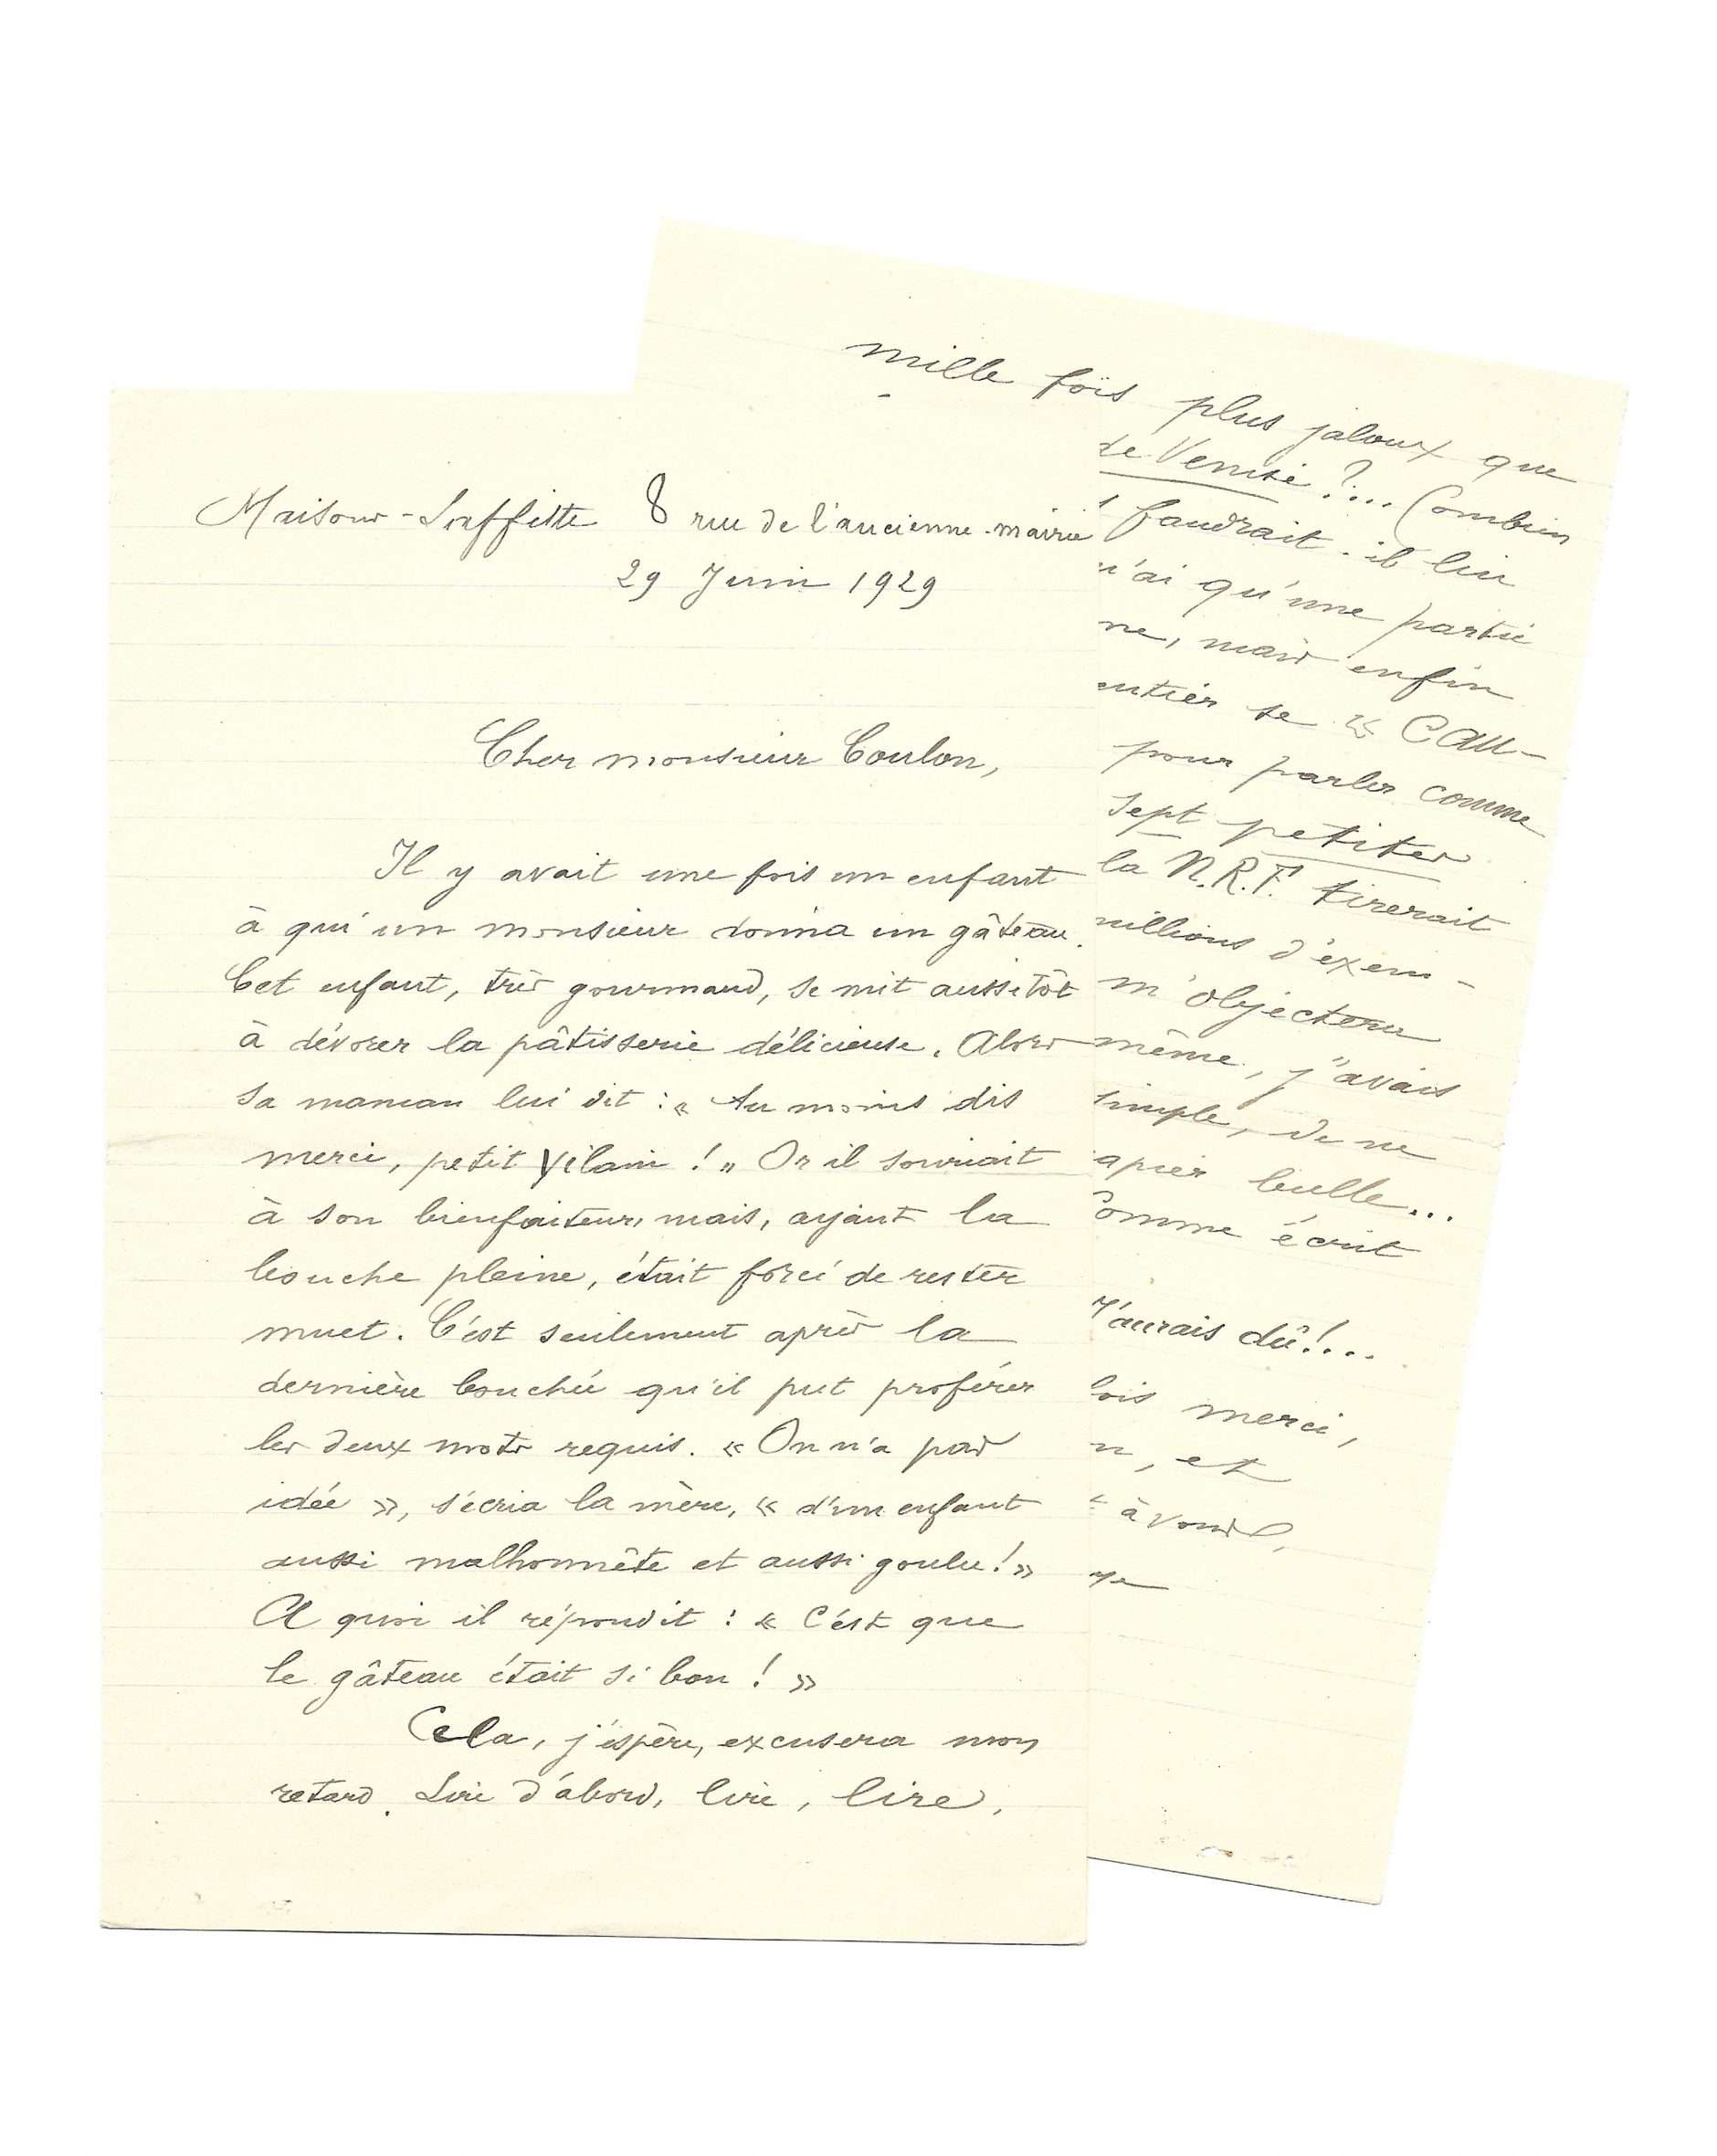 Maisons-Laffitte 8 rue de l'ancienne-mairie
29 Juin 1929
Cher monsieur Coulon,
Il y avait une fois un enfant
à qui un monsieur donna un gâteau.
Cet enfant, très gourmand, se mit aussitôt
à dévorer la pâtisserie délicieuse. Alors
sa maman lui dit : « Au moins dis
merci, petit vilain ! » Or il souriait
à son bienfaiteur, mais, ayant la
bouche pleine, était forcé de rester
muet. C'est seulement après la
dernière bouchée qu'il put proférer
les deux mots requis. « On n'a pas
idée », s'écria la mère, « d'un enfant
aussi malhonnête et aussi goulu ! »
A quoi il répondit : « C'est que
le gâteau était si bon ! »
Cela, j'espère, excusera mon
retard. Lire d'abord, lire, lire,
mille fois plus jaloux que
de Venise ?... Combien
faudrait-il lui
n'ai qu'une partie
ne, mais enfin
entier se « CAU-
pour parler comme
sept petites
la N.R.F. tirerait
millions d'exem-
m'objectera
même, j'avais
simple, de ne
apier bulle...
Comme écrit
J'aurais dû !...
ois merci,
n, et
à vous,